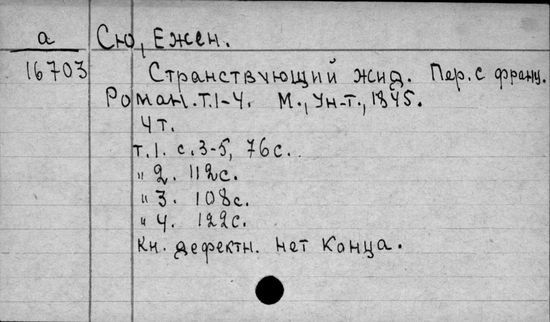 а Сю, Ежен.
16703
Странствующий жид. Пер. с франц.
Роман. Т.1-4. М., Ун-т., 1845.
4 т.
т.1. с.3-5, 76с.
" 2. 112с.
" 3. 108с.
" 4. 122с.
Кн. дефектн. нет конца.